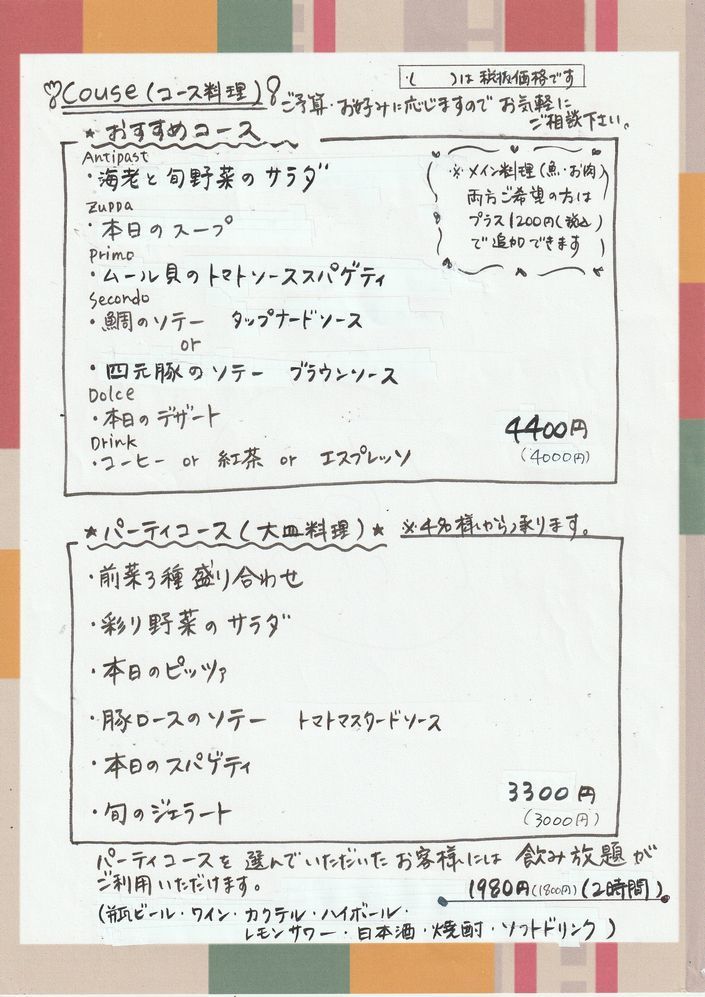 Couse (コース料理)
・(　　)は税抜価格です
ご予算・お好みに応じますので お気軽に
ご相談下さい。
★おすすめコース
Antipast
・海老と旬野菜のサラダ
zuppa
・本日のスープ
primo
・ムール貝のトマトソーススパゲティ
Secondo
・鯛のソテー　タップナードソース
or
・四元豚のソテー　ブラウンソース
Dolce
・本日のデザート
Drink
・コーヒー or 紅茶 or エスプレッソ
※メイン料理(魚・お肉)
両方ご希望の方は
プラス1200円(税込)
で追加できます
4400円
(4000円)
★パーティコース(大皿料理)★ ※4名様から承ります。
・前菜3種盛り合わせ
・彩り野菜のサラダ
・本日のピッツァ
・豚ロースのソテー　トマトマスタードソース
・本日のスパゲティ
・旬のジェラート
3300円
(3000円)
パーティコースを選んでいただいたお客様には 飲み放題が
ご利用いただけます。
1980円(1800円)(2時間)
(瓶ビール・ワイン・カクテル・ハイボール・
レモンサワー・日本酒・焼酎・ソフトドリンク)